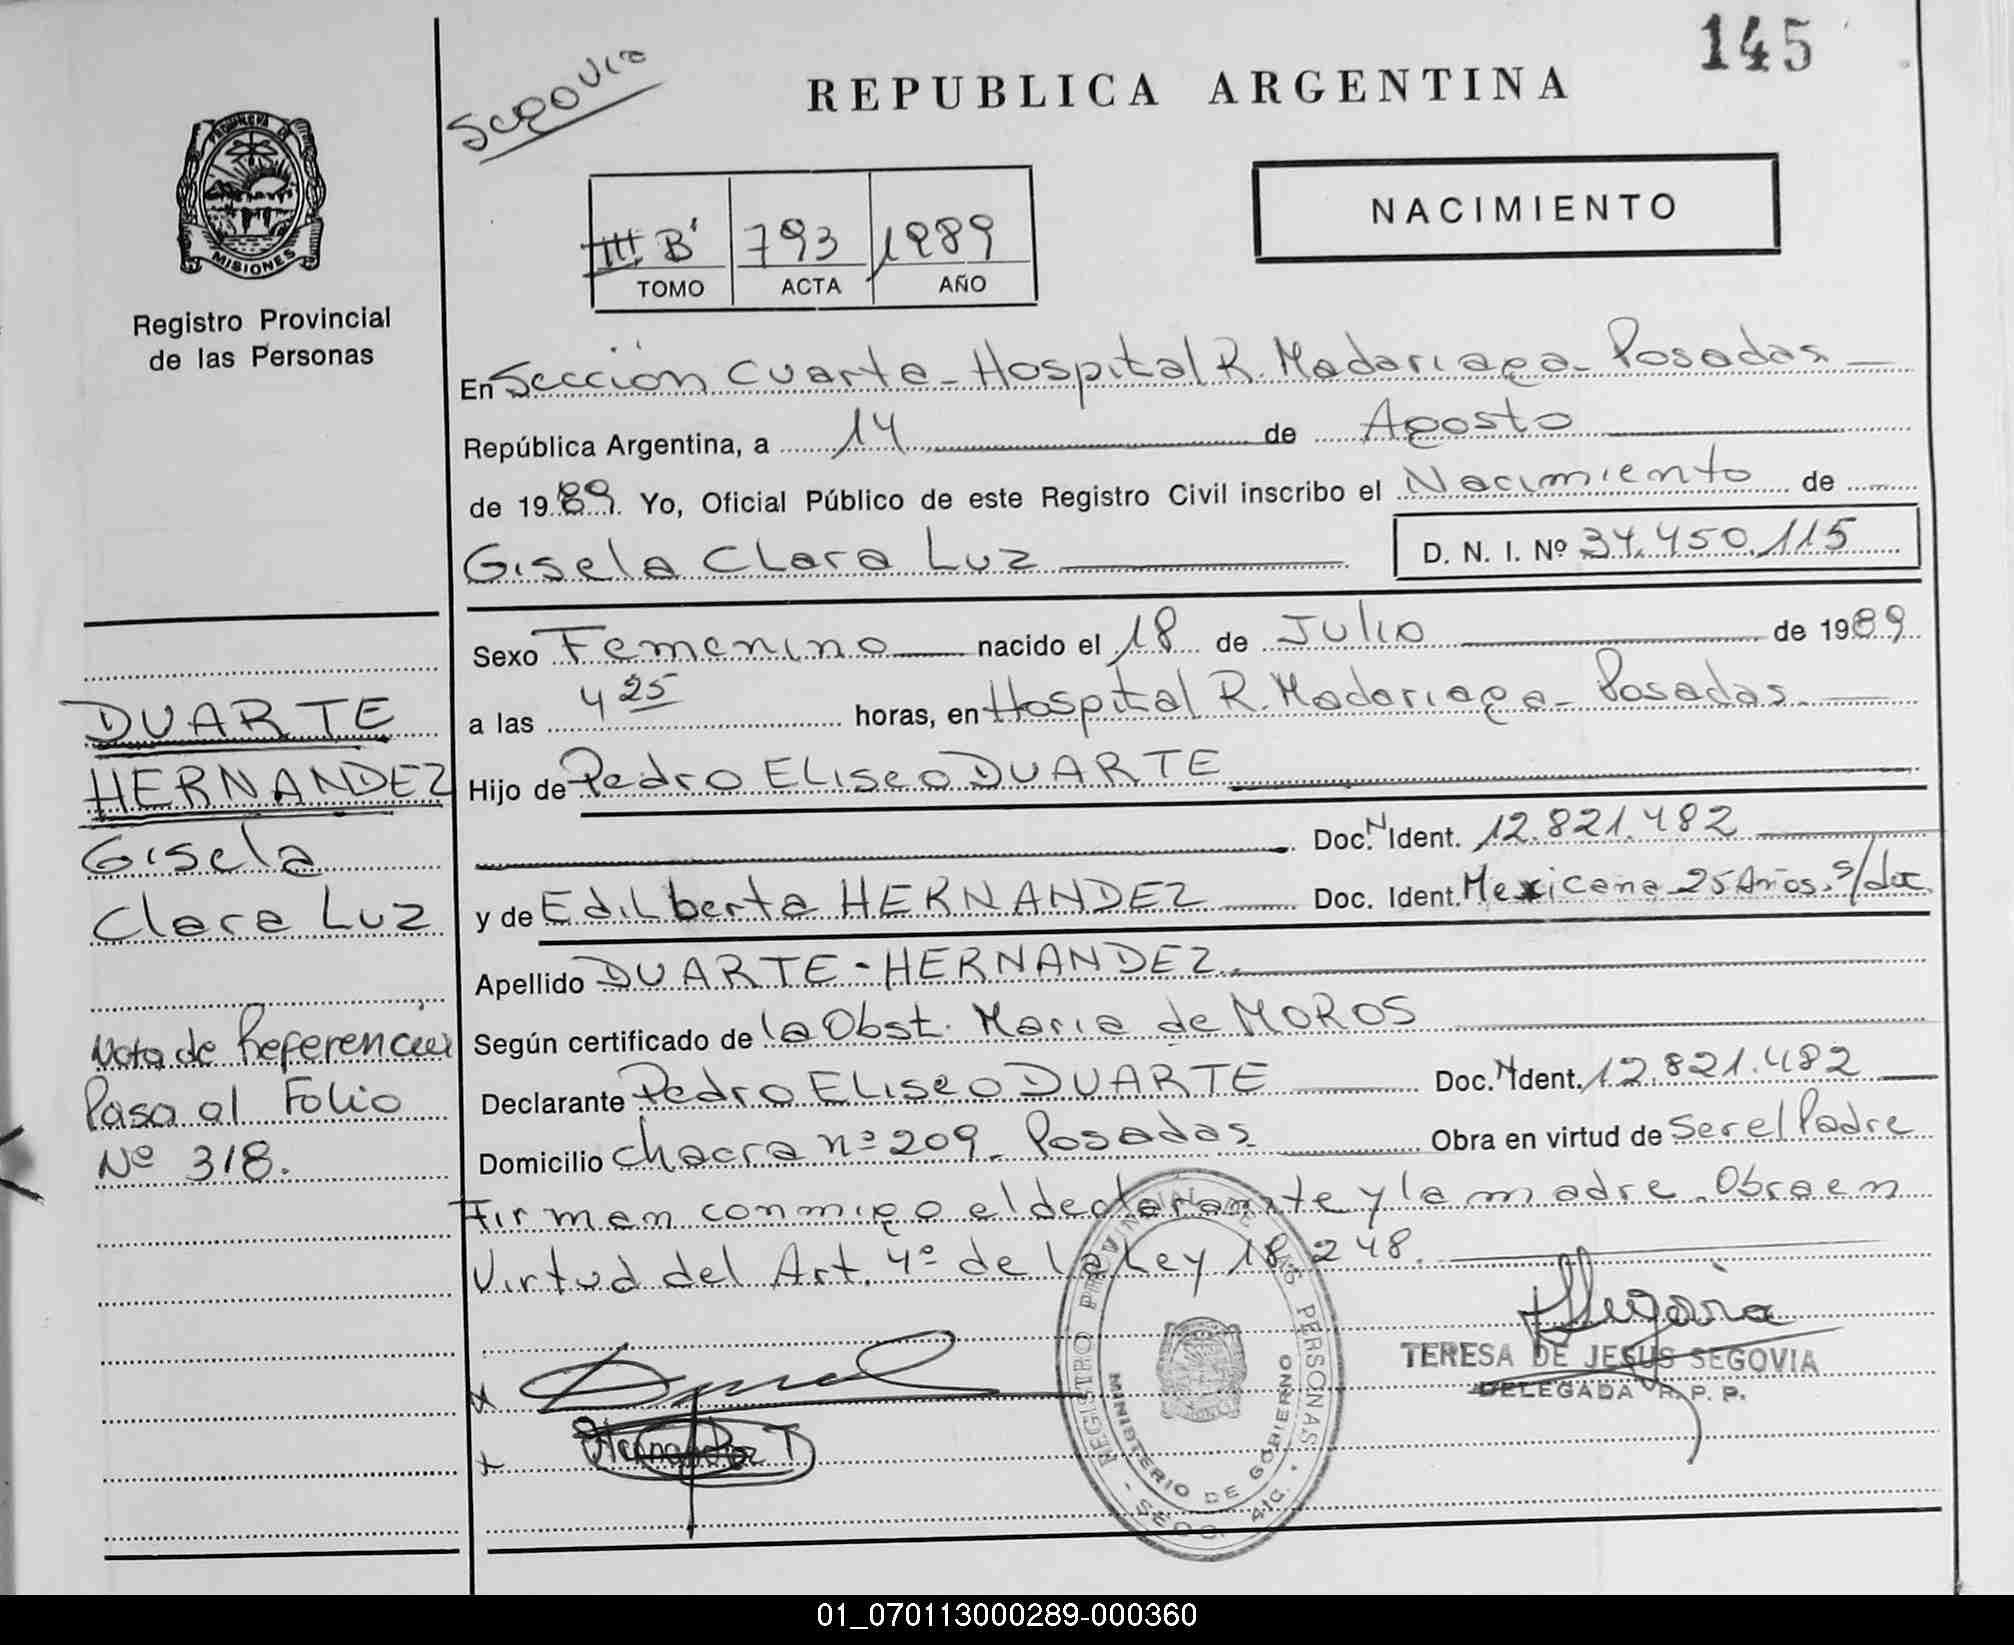 145
Segovia
REPUBLICA ARGENTINA
PROVINCIA DE
MISIONES
Registro Provincial
de las Personas
III B' 793 1989
TOMO ACTA AÑO
NACIMIENTO
En Sección Cuarta - Hospital R. Madariaga - Posadas
República Argentina, a 14 de Agosto
de 1989 Yo, Oficial Público de este Registro Civil inscribo el Nacimiento de
Gisela Clara Luz
D. N. I. Nº 34.450.115
Sexo Femenino nacido el 18 de Julio de 1989
a las 4 25 horas, en Hospital R. Madariaga - Posadas
Hijo de Pedro Eliseo DUARTE
Doc. N Ident. 12.821.482
y de Edilberta HERNANDEZ Doc. Ident. Mexicana 25 Años. s/doc.
Apellido DUARTE - HERNANDEZ
Según certificado de la Obst. Maria de MOROS
Declarante Pedro Eliseo DUARTE Doc. N Ident. 12.821.482
Domicilio Chacra nº 209 - Posadas Obra en virtud de Ser el Padre
Firman conmigo el declarante y la madre. Obra en
Virtud del Art. 4º de la Ley 18.248.
DUARTE
HERNANDEZ
Gisela
Clara Luz
Nota de Referencia
Pasa al Folio
Nº 318.
x
x Hernandez
REGISTRO PROVINCIAL DE LAS PERSONAS
MINISTERIO DE GOBIERNO
SECC. 4ta.
Segovia
TERESA DE JESUS SEGOVIA
DELEGADA R. P. P.
01_070113000289-000360